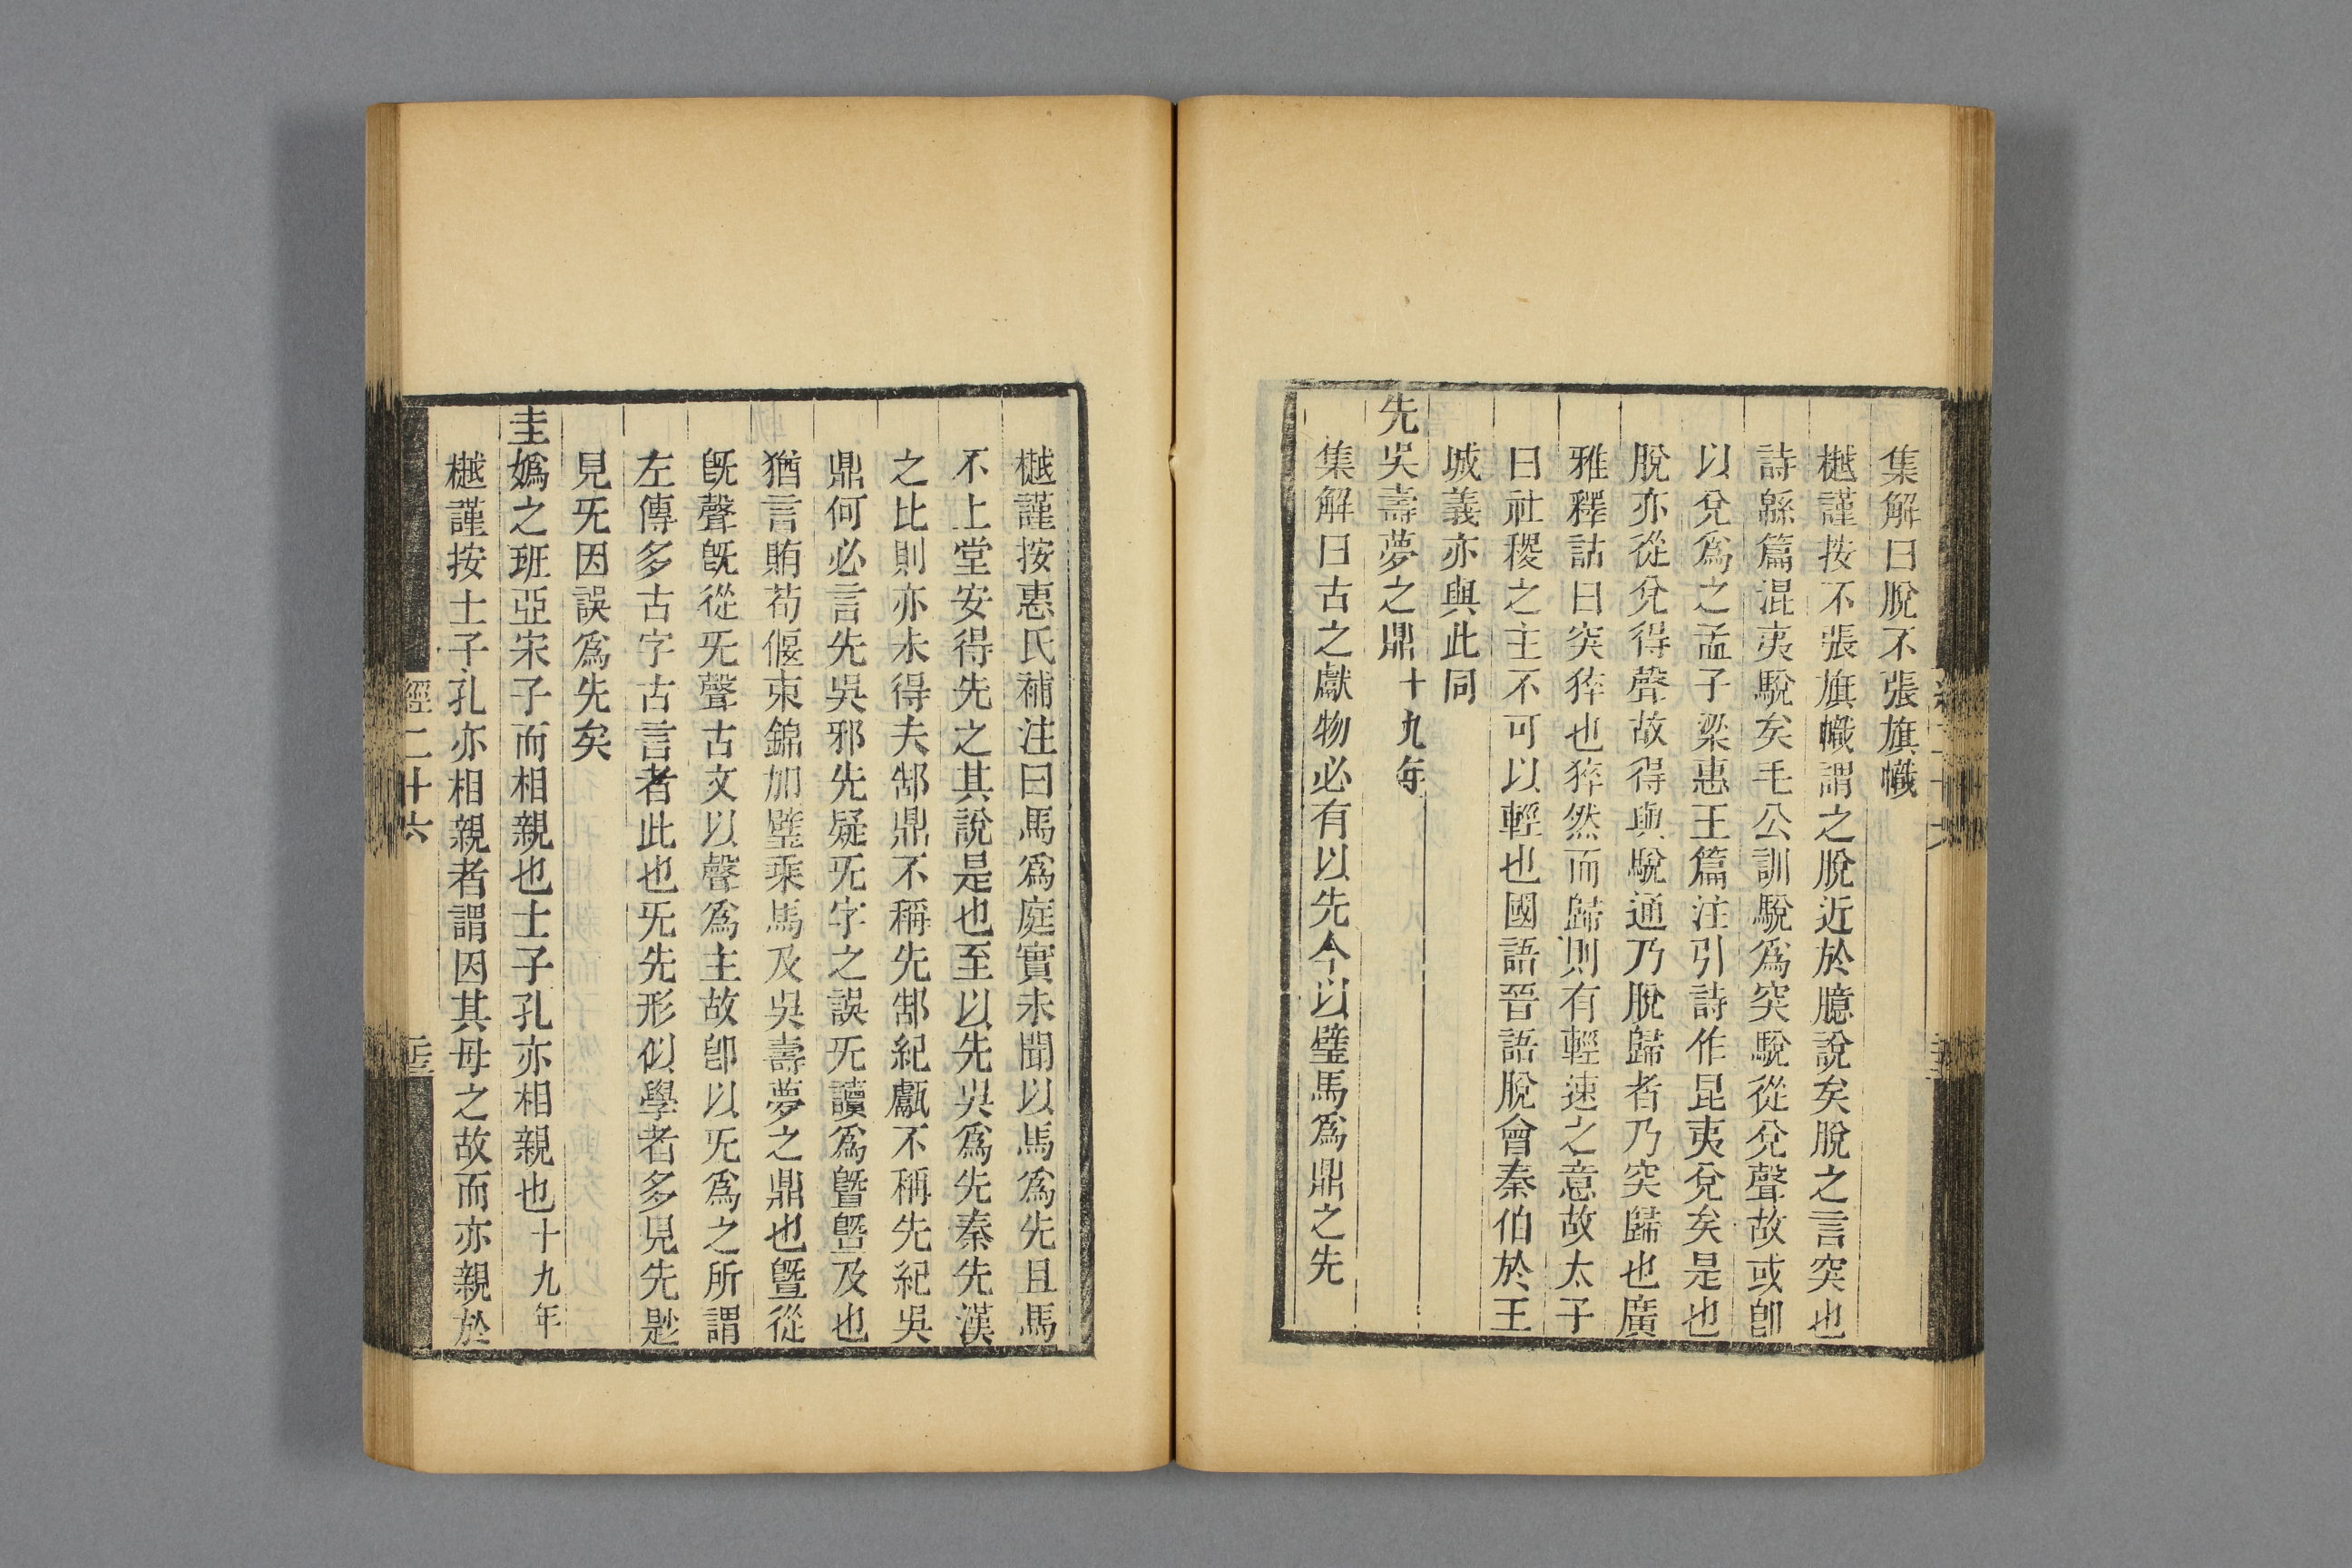 集解曰脫不張旗幟
樾謹按不張旗幟謂之脫近於臆說矣脫之言突也
詩緜篇混夷駾矣毛公訓駾爲突駾從兌聲故或卽
以兌爲之孟子梁惠王篇注引詩作昆夷兌矣是也
脫亦從兌得聲故得與駾通乃脫歸者乃突歸也廣
雅釋詁曰突猝也猝然而歸則有輕速之意故太子
曰社稷之主不可以輕也國語晉語脫會秦伯於王
城義亦與此同
先吳壽夢之鼎十九年
集解曰古之獻物必有以先今以璧馬爲鼎之先
樾謹按惠氏補注曰馬爲庭實未聞以馬爲先且馬
不上堂安得先之其說是也至以先吳爲先秦先漢
之比則亦未得夫郜鼎不稱先郜紀甗不稱先紀吳
鼎何必言先吳邪先疑旡字之誤旡讀爲曁曁及也
猶言賄荀偃束錦加璧乘馬及吳壽夢之鼎也曁從
旣聲旣從旡聲古文以聲爲主故卽以旡爲之所謂
左傳多古字古言者此也旡先形似學者多見先尟
見旡因誤爲先矣
圭嬀之班亞宋子而相親也士子孔亦相親也十九年
樾謹按士子孔亦相親者謂因其母之故而亦親於
經二十六